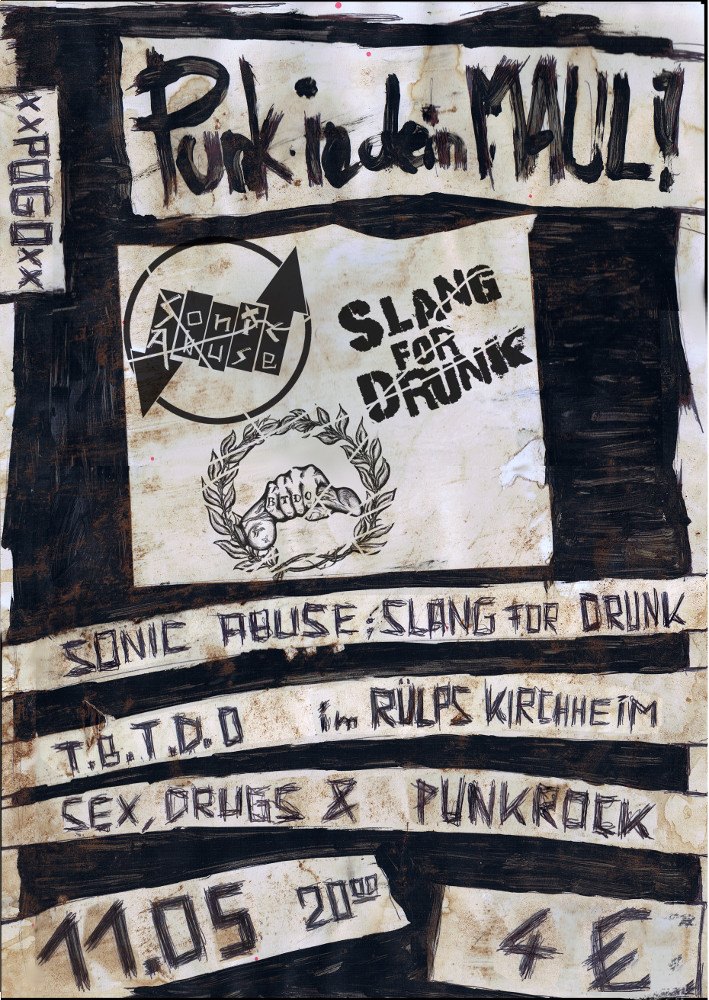 Punk in dein MAUL!
xxPOGOxx
Sonic
Abuse
SLANG
FOR
DRUNK
BTDO
SONIC ABUSE; SLANG FOR DRUNK
T.B.T.D.O im RÜLPS KIRCHHEIM
SEX, DRUGS & PUNKROCK
11.05 20⁰⁰
4 E